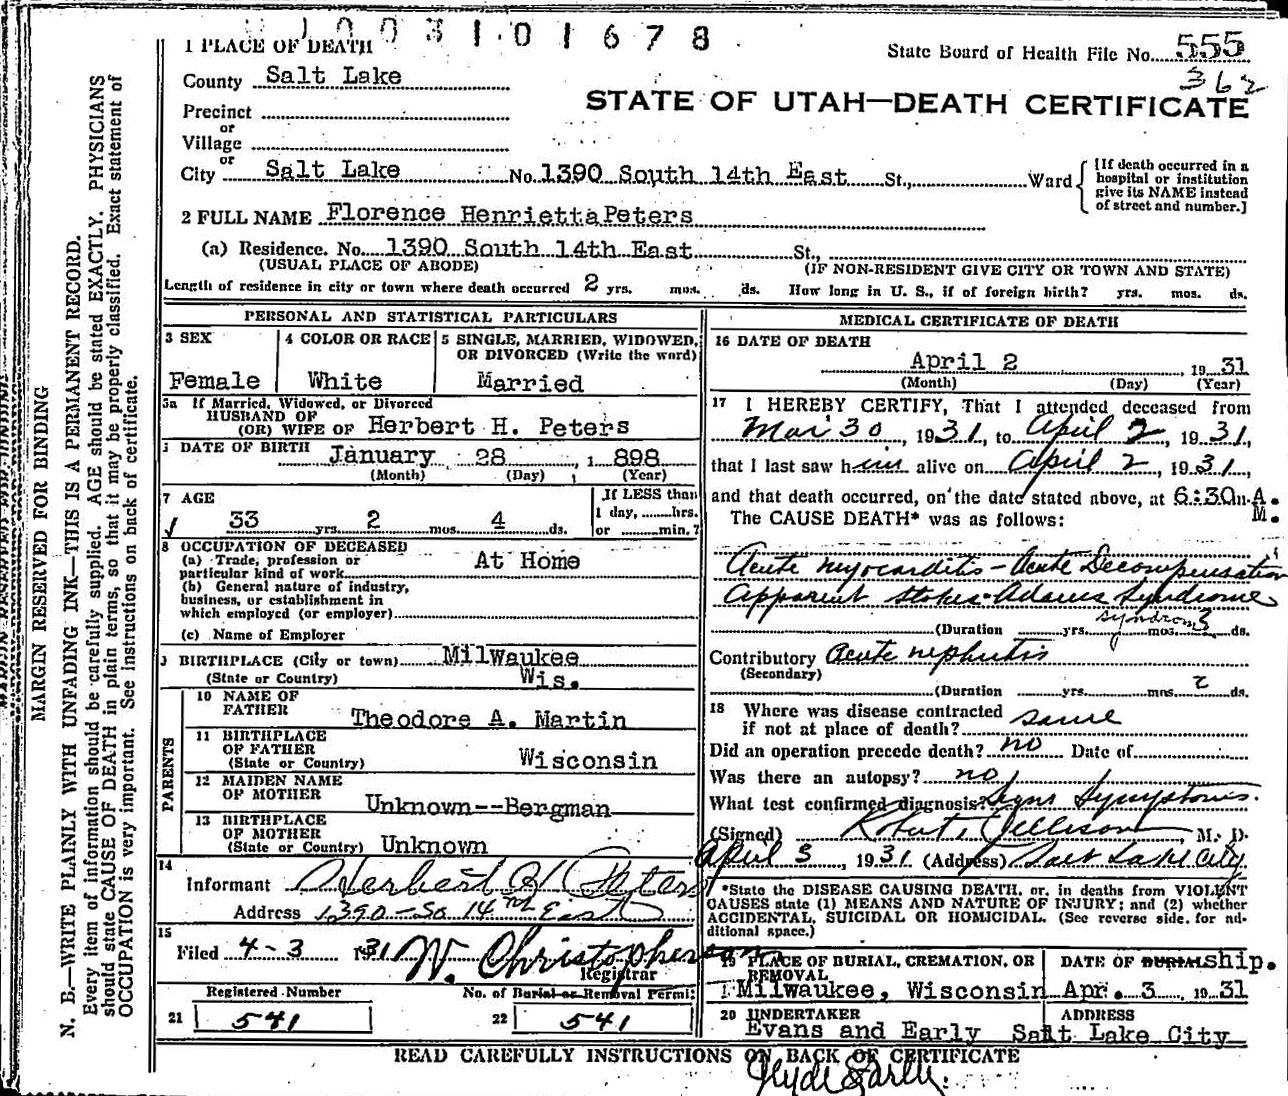 0 0 3 1 0 1 6 7 8
1 PLACE OF DEATH
State Board of Health File No. 555
362
County Salt Lake
STATE OF UTAH—DEATH CERTIFICATE
Precinct
or
Village
or
City Salt Lake No. 1390 South 14th East St., Ward {[If death occurred in a hospital or institution give its NAME instead of street and number.]
2 FULL NAME Florence Henrietta Peters
(a) Residence. No. 1390 South 14th East St.,
(USUAL PLACE OF ABODE) (IF NON-RESIDENT GIVE CITY OR TOWN AND STATE)
Length of residence in city or town where death occurred 2 yrs. mos. ds. How long in U. S., if of foreign birth? yrs. mos. ds.
PERSONAL AND STATISTICAL PARTICULARS
3 SEX
Female
4 COLOR OR RACE
White
5 SINGLE, MARRIED, WIDOWED,
OR DIVORCED (Write the word)
Married
5a If Married, Widowed, or Divorced
HUSBAND OF
(OR) WIFE OF Herbert H. Peters
DATE OF BIRTH January 28, 1898
(Month) (Day) (Year)
7 AGE
33 yrs. 2 mos. 4 ds.
If LESS than
1 day, hrs.
or min.?
8 OCCUPATION OF DECEASED
(a) Trade, profession or
particular kind of work At Home
(b) General nature of industry,
business, or establishment in
which employed (or employer)
(c) Name of Employer
9 BIRTHPLACE (City or town) Milwaukee
(State or Country) Wis.
PARENTS
10 NAME OF
FATHER Theodore A. Martin
11 BIRTHPLACE
OF FATHER
(State or Country) Wisconsin
12 MAIDEN NAME
OF MOTHER Unknown--Bergman
13 BIRTHPLACE
OF MOTHER
(State or Country) Unknown
14
Informant Herbert H Peters
Address 1390-So 14th East
15
Filed 4-3 1931 W. Christopherson
Registrar
Registered Number
21 541
No. of Burial or Removal Permit
22 541
MEDICAL CERTIFICATE OF DEATH
16 DATE OF DEATH
April 2, 1931
(Month) (Day) (Year)
17 I HEREBY CERTIFY, That I attended deceased from
Mar 30, 1931, to April 2, 1931,
that I last saw him alive on April 2, 1931,
and that death occurred, on the date stated above, at 6:30 m. A.
M.
The CAUSE DEATH* was as follows:
Acute myocarditis - Acute Decompensation
Apparent Stokes-Adams Syndrome
syndrome
(Duration yrs. mos. 3 ds.
Contributory Acute nephritis
(Secondary)
(Duration yrs. mos. 2 ds.
18 Where was disease contracted
if not at place of death? same
Did an operation precede death? no Date of
Was there an autopsy? no
What test confirmed diagnosis? Signs Symptoms.
(Signed) Robt. T. Jellison, M. D.
April 3, 1931 (Address) Salt Lake City
*State the DISEASE CAUSING DEATH, or, in deaths from VIOLENT
CAUSES state (1) MEANS AND NATURE OF INJURY; and (2) whether
ACCIDENTAL, SUICIDAL OR HOMICIDAL. (See reverse side for ad-
ditional space.)
19 PLACE OF BURIAL, CREMATION, OR
REMOVAL
Milwaukee, Wisconsin
DATE OF BURIAL ship.
Apr. 3, 1931
20 UNDERTAKER
Evans and Early
ADDRESS
Salt Lake City
READ CAREFULLY INSTRUCTIONS ON BACK OF CERTIFICATE
Clyde Early.
MARGIN RESERVED FOR BINDING
N. B.—WRITE PLAINLY WITH UNFADING INK—THIS IS A PERMANENT RECORD.
Every item of information should be carefully supplied. AGE should be stated EXACTLY. PHYSICIANS
should state CAUSE OF DEATH in plain terms, so that it may be properly classified. Exact statement of
OCCUPATION is very important. See instructions on back of certificate.